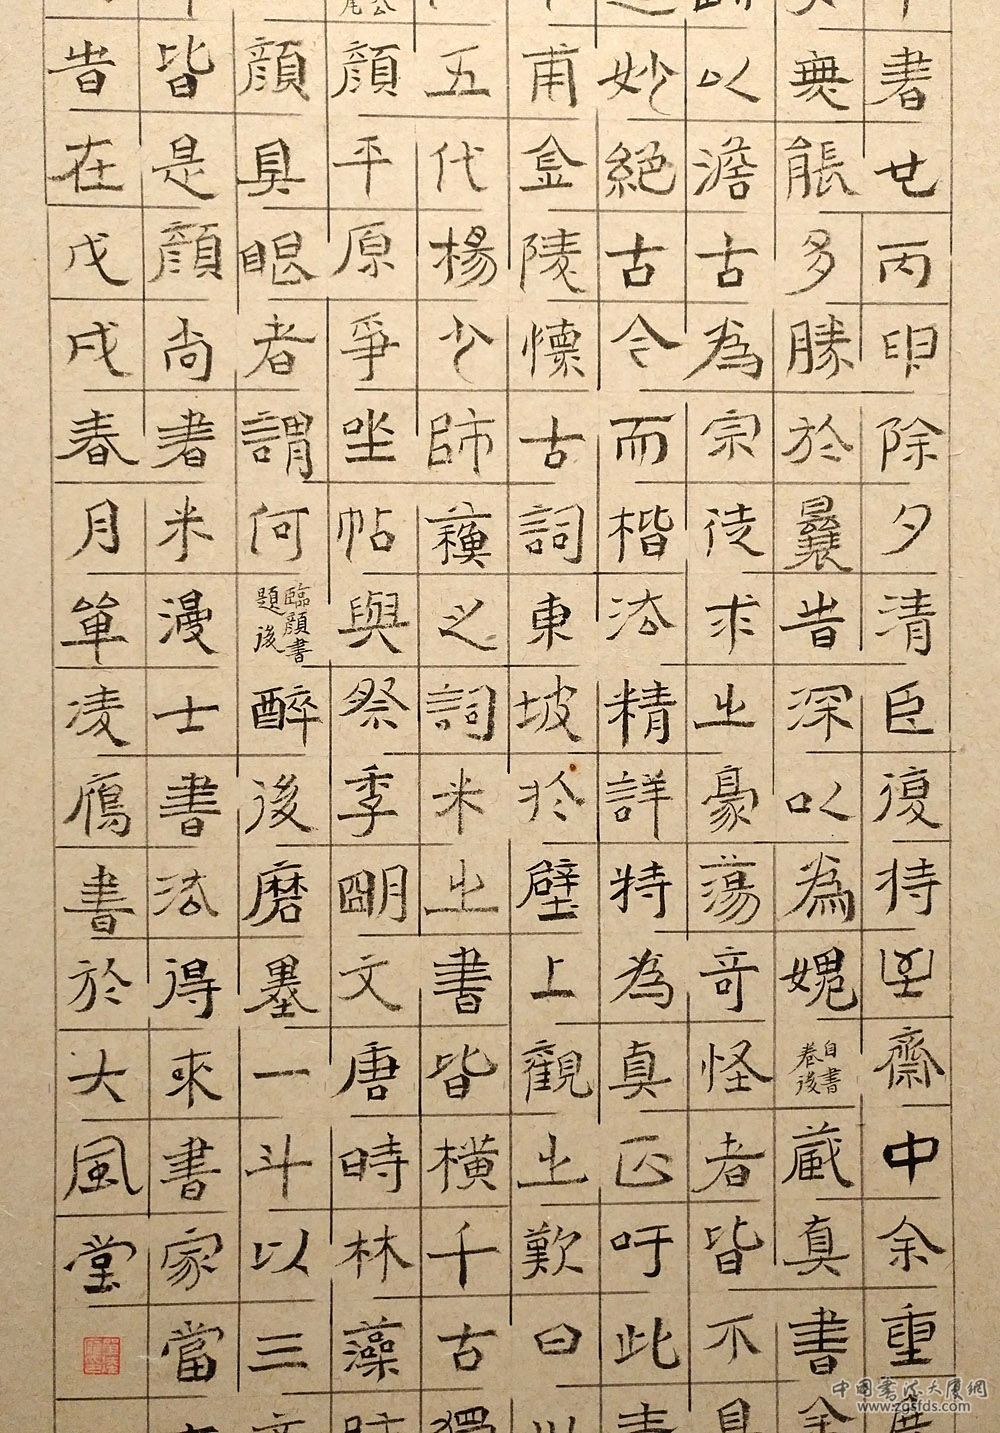 書廿丙卯除夕清臣復持至齋中余重展
無能多勝於曩昔深以為媿自書卷後藏真書
以澹古為宗徒求之豪蕩奇怪者皆不具
妙絕古今而楷法精詳特為真正吁此
甫金陵懷古詞東坡於壁上觀之歎曰
五代楊少師蘓之詞米之書皆橫千古
顏平原爭坐帖與祭季明文唐時林藻
顏具眼者謂何臨顏書題後醉後磨墨一斗以三
皆是顏尚書米漫士書法得來書家當
昔在戊戌春月單凌雁書於大風堂
中国书法大厦网
www.zgsfds.com